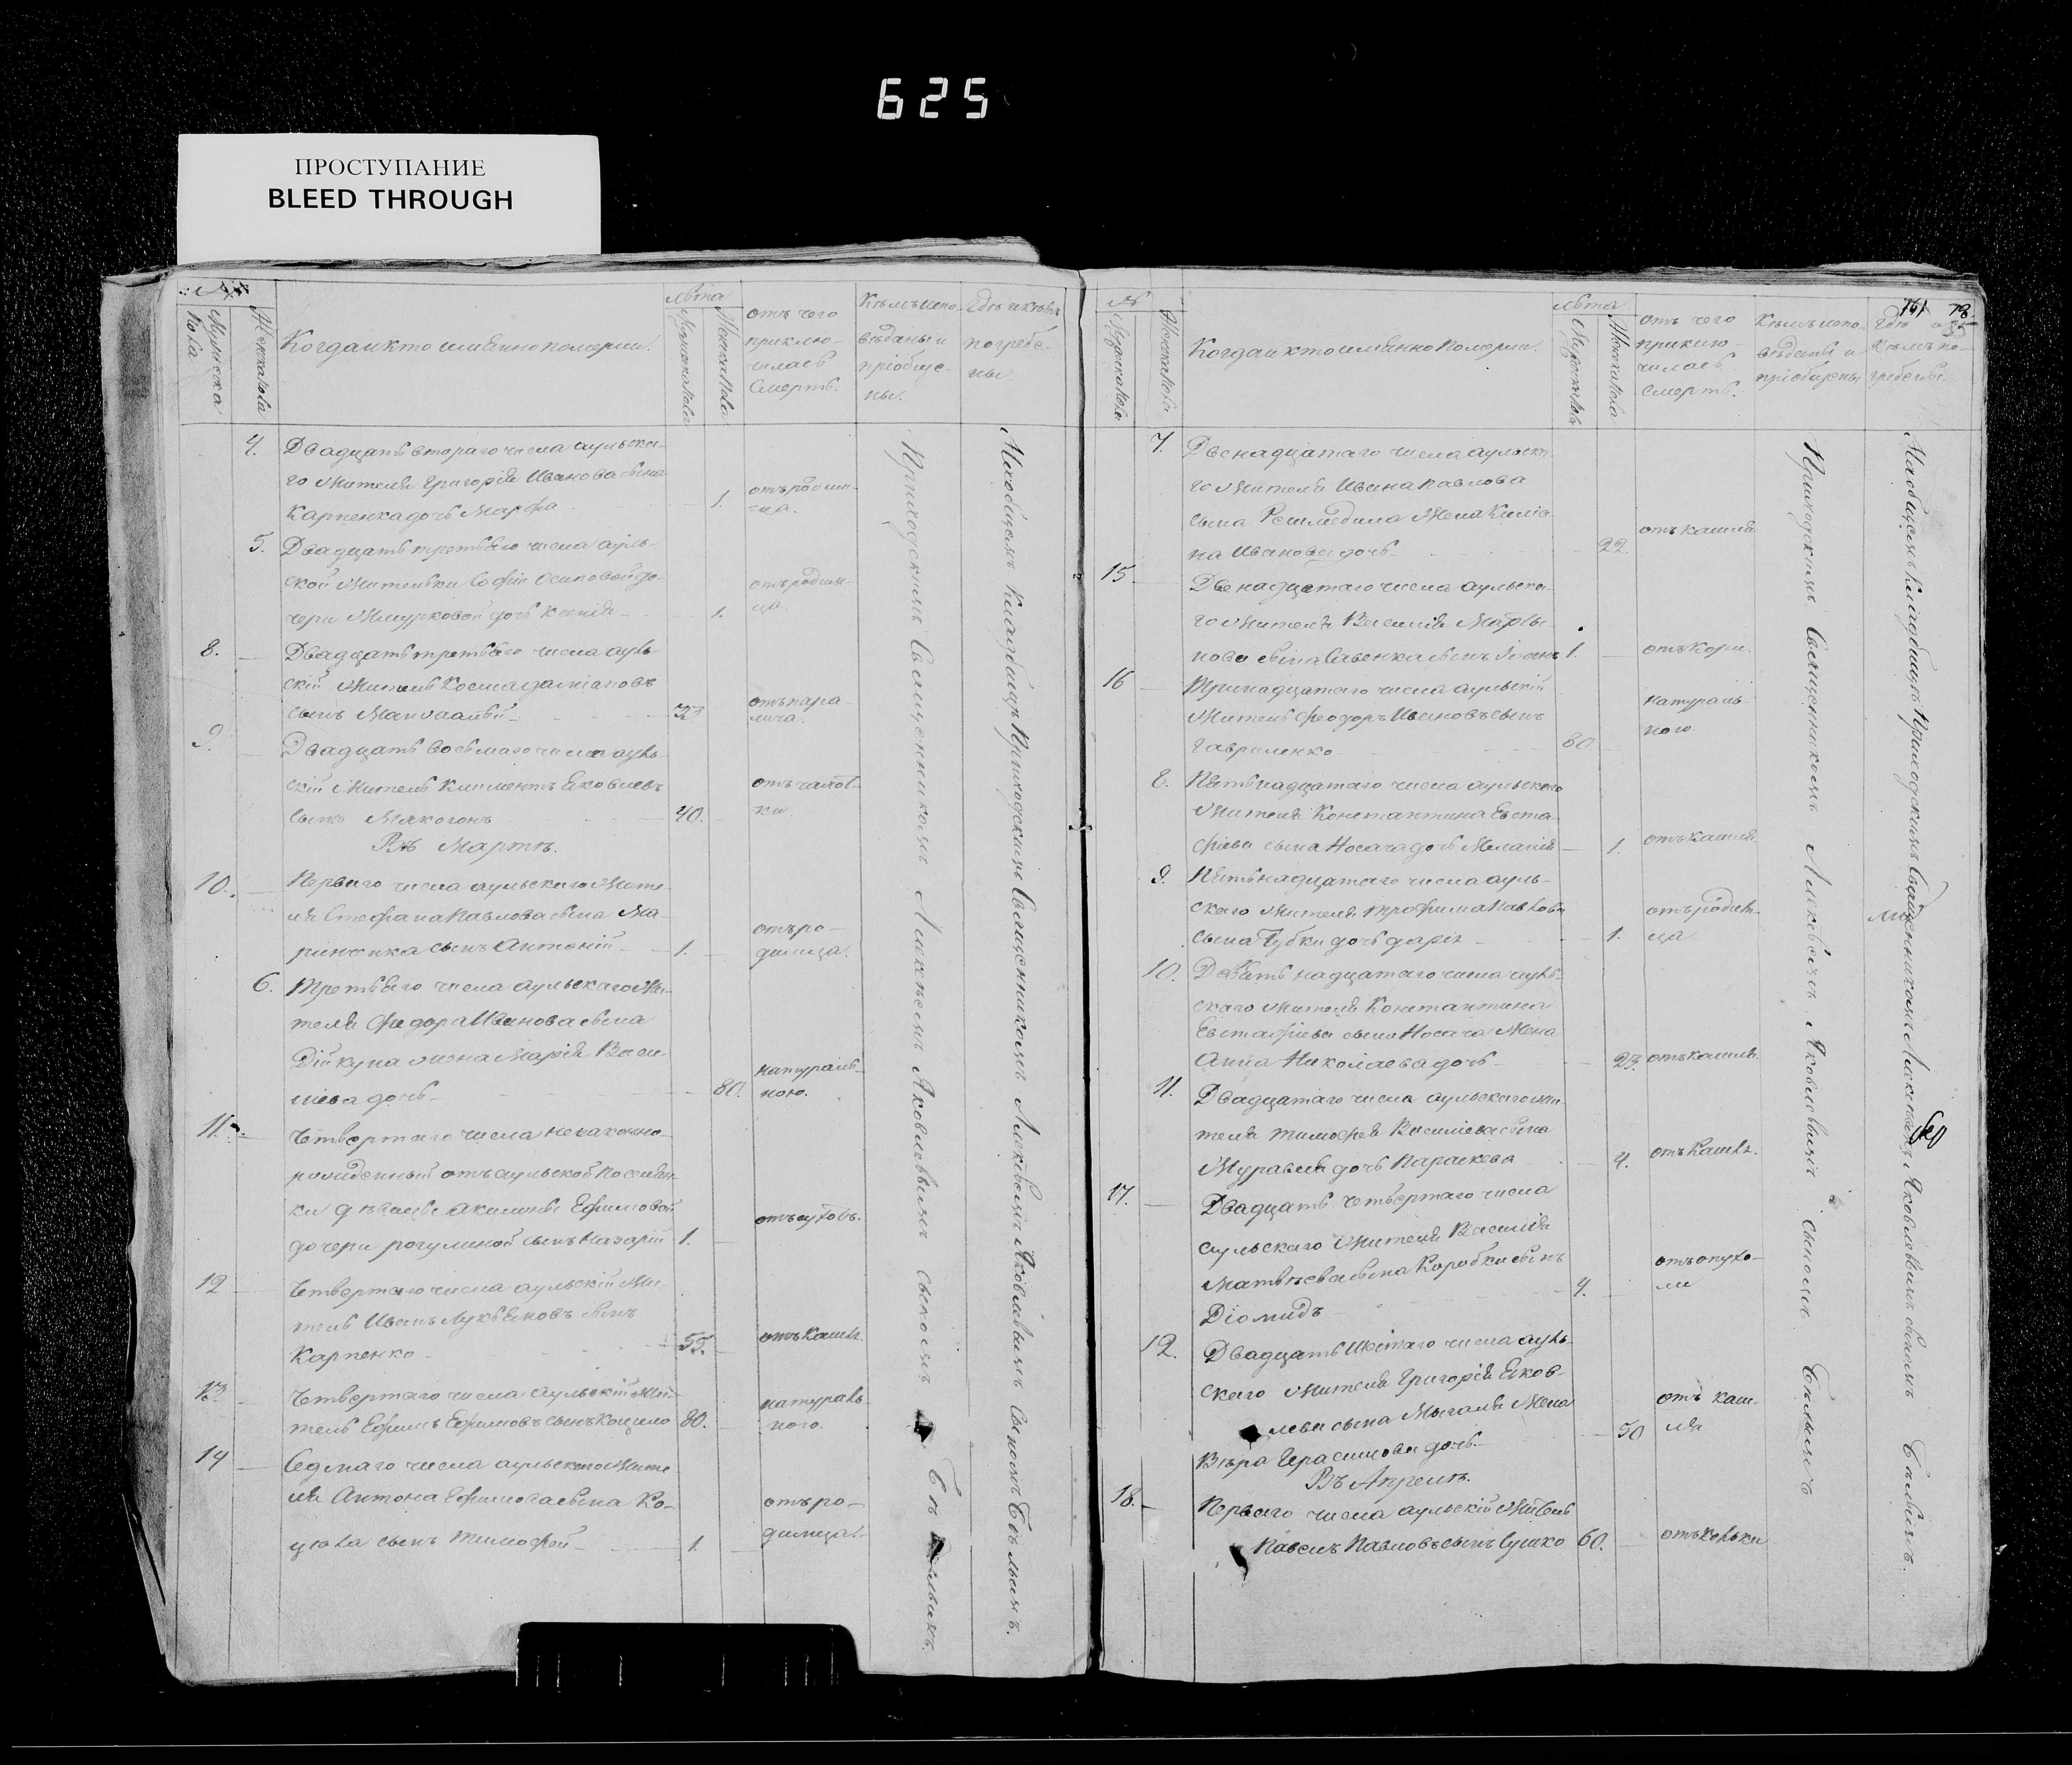 625
ПРОСТУПАНИЕ
BLEED THROUGH
№
Мужеска
пола
Женска пола
Когда и кто имянно померли.
лѣта
Мужеска пола
Женска пола
отъ чего
приклю-
чилась
смерть.
Кѣмъ испо-
вѣданы и
пріобще-
ны.
Гдѣ и кѣмъ
погребе-
ны.
4.
Двадцать втораго числа аульска-
го жителя Григорія Иванова сына
Карпенка дочь Марфа
1.
отъ родим-
ца.
5.
Двадцать третьяго числа ауль-
ской жительки Софіи Осиповой до-
чери Жмурковой дочь Ксенія
1.
отъ родим-
ца.
8.
Двадцать третьяго числа ауль-
скій житель Косма Даміановъ
сынъ
отъ пара
лича.
9.
Двадцать восьмаго числа ауль-
скій житель Климентъ Яковлевъ
сынъ Макогонъ
40.
отъ чахот-
ки.
Въ Мартѣ.
10.
Перваго числа аульскаго жите-
ля Стефана Павлова сына Ма-
ринченка сынъ Антоній
1.
отъ ро-
димца.
6.
Третьяго числа аульскаго жи-
теля Федора Иванова сына
Дійкуна жена Марія Васи-
ліева дочь
80.
натураль-
ною.
11.
Четвертаго числа незаконно-
рожденный отъ аульской поселян-
ки дѣвицы Акилины Ефимовой
дочери Рогулиной сынъ Назарій
1.
отъ сухотъ.
12
Четвертаго числа аульскій жи-
тель Иванъ Лукьяновъ сынъ
Карпенко
55.
отъ кашля.
13.
Четвертаго числа аульскій жи-
тель Ефимъ Ефимовъ сынъ
80.
натураль-
ного.
14
Седмаго числа аульскаго жите-
ля Антона Ефимова сына Ко-
цюба сынъ Тимофей
1.
отъ ро-
димца.
Приходскимъ Священникомъ Алексѣемъ Яковлевымъ сыномъ Бѣлымъ.
На общемъ кладбищѣ Приходскимъ Священникомъ Алексѣемъ Яковлевымъ сыномъ Бѣлымъ.
№
Мужеска пола
Женска пола
Когда и кто имянно померли.
лѣта
Мужеска пола
Женска пола
отъ чего
приклю-
чилась
смерть.
Кѣмъ испо-
вѣданы и
пріобщены
Гдѣ и
кѣмъ по-
гребены.
7.
Двенадцатаго числа аульска-
го жителя Ивана Павлова
сына жена
на Иванова дочь
22.
отъ кашля
15
Двенадцатаго числа аульска-
го жителя Василія Марты-
нова сына Савенка сынъ Іоанъ
1.
отъ кори.
16
Тринадцатаго числа аульскій
житель Феодоръ Ивановъ сынъ
Гавриленко
80.
натураль
ного
8.
Пятьнадцатаго числа аульскаго
жителя Константина Евста-
фіева сына Носача дочь Меланія
1.
отъ кашля.
9.
Пятьнадцатаго числа ауль-
скаго жителя Трофима Павлова
сына Губки дочь Дарія
1.
отъ родим-
ца
10.
Девятьнадцатаго числа ауль-
скаго жителя Константина
Евстафіева сына Носача жена
Анна Николаева дочь
23.
отъ кашля.
11.
Двадцатаго числа аульскаго жи-
теля Тимофея Василіева сына
Журавля дочь Параскева
4.
отъ кашля.
17.
Двадцать четвертаго числа
аульскаго жителя Василія
Матвѣева сына Коробки сынъ
Діомидъ
4.
отъ опухо-
ли
12.
Двадцать шестаго числа ауль-
скаго жителя Григорія Яков-
лева сына жена
Вѣра Герасимова дочь
50
отъ каш-
ля
Въ Апрелѣ.
18.
Перваго числа аульскій житель
Павелъ Павловъ сынъ Сушко
60.
Приходскимъ Священникомъ Алексѣемъ Яковлевымъ сыномъ Бѣлымъ
На общемъ кладбищѣ Приходскимъ Священникомъ Алексѣемъ Яковлевымъ сыномъ Бѣлымъ.